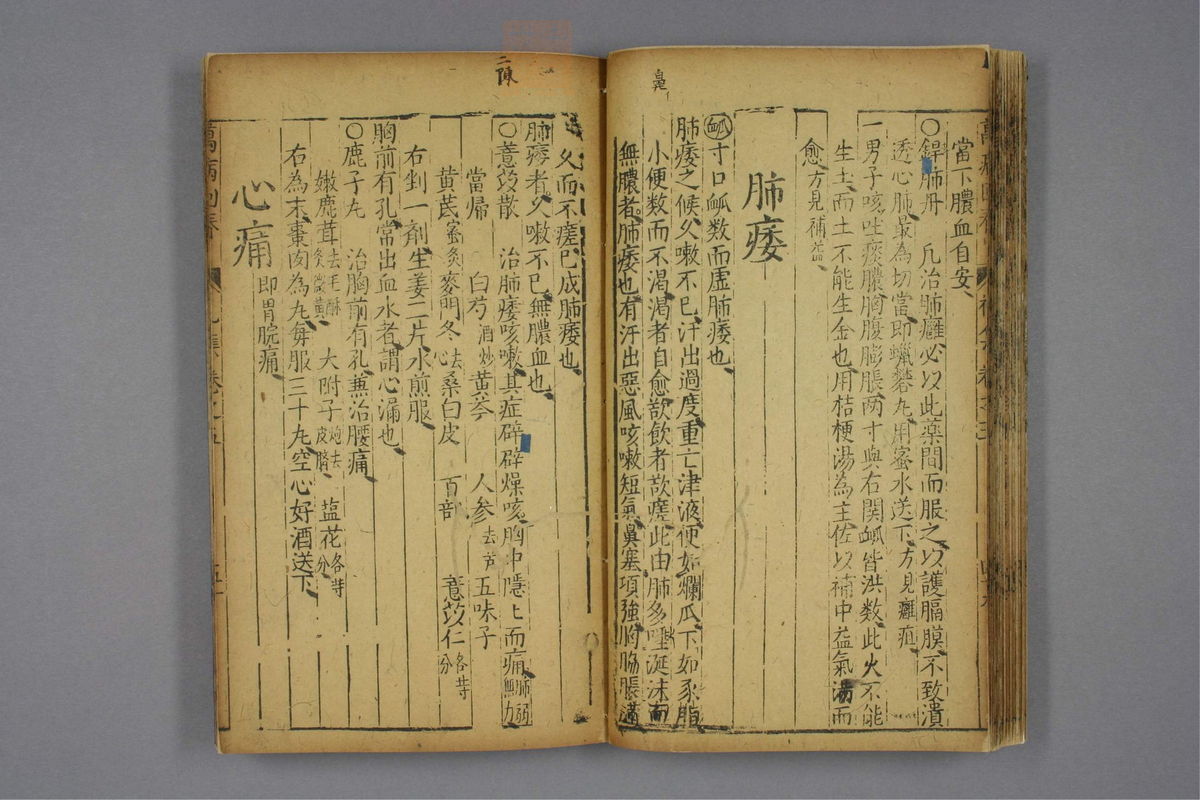 當下膿血自安
〇肺丹 凡治肺癰必以此藥間而服之以護膈膜不致潰
透心肺最為切當即蠟礬丸用蜜水送下方見癰疽
一男子咳吐痰膿胸腹膨脹两寸與右関脉皆洪数此火不能
生土而土不能生金也用桔梗湯為主佐以補中益氣湯而
愈方見補益
肺痿
脉寸口脉数而虚肺痿也
肺痿之候久嗽不已汗出過度重亡津液便如爛瓜下如豕脂
小便数而不渴渴者自愈欲飲者欲瘥此由肺多唾涎沫而
無膿者肺痿也有汗出惡風咳嗽短氣鼻塞項強胸脇脹滿
久而不瘥已成肺痿也
肺痿者久嗽不已無膿血也
〇薏苡散 治肺痿咳嗽其症辟辟燥咳胸中隱上而痛肺弱無力
當帰 白芍酒炒 黄芩 人参去芦 五味子
黄芪蜜炙 麥門冬去心 桑白皮 百部 薏苡仁各等分
右剉一劑生姜二片水煎服
胸前有孔常出血水者謂心漏也
〇鹿子丸 治胸前有孔兼治腰痛
嫩鹿茸去毛酥炙微黄 大附子炮去皮臍 塩花各等分
右為末棗肉為丸每服三十丸空心好酒送下
心痛 即胃脘痛